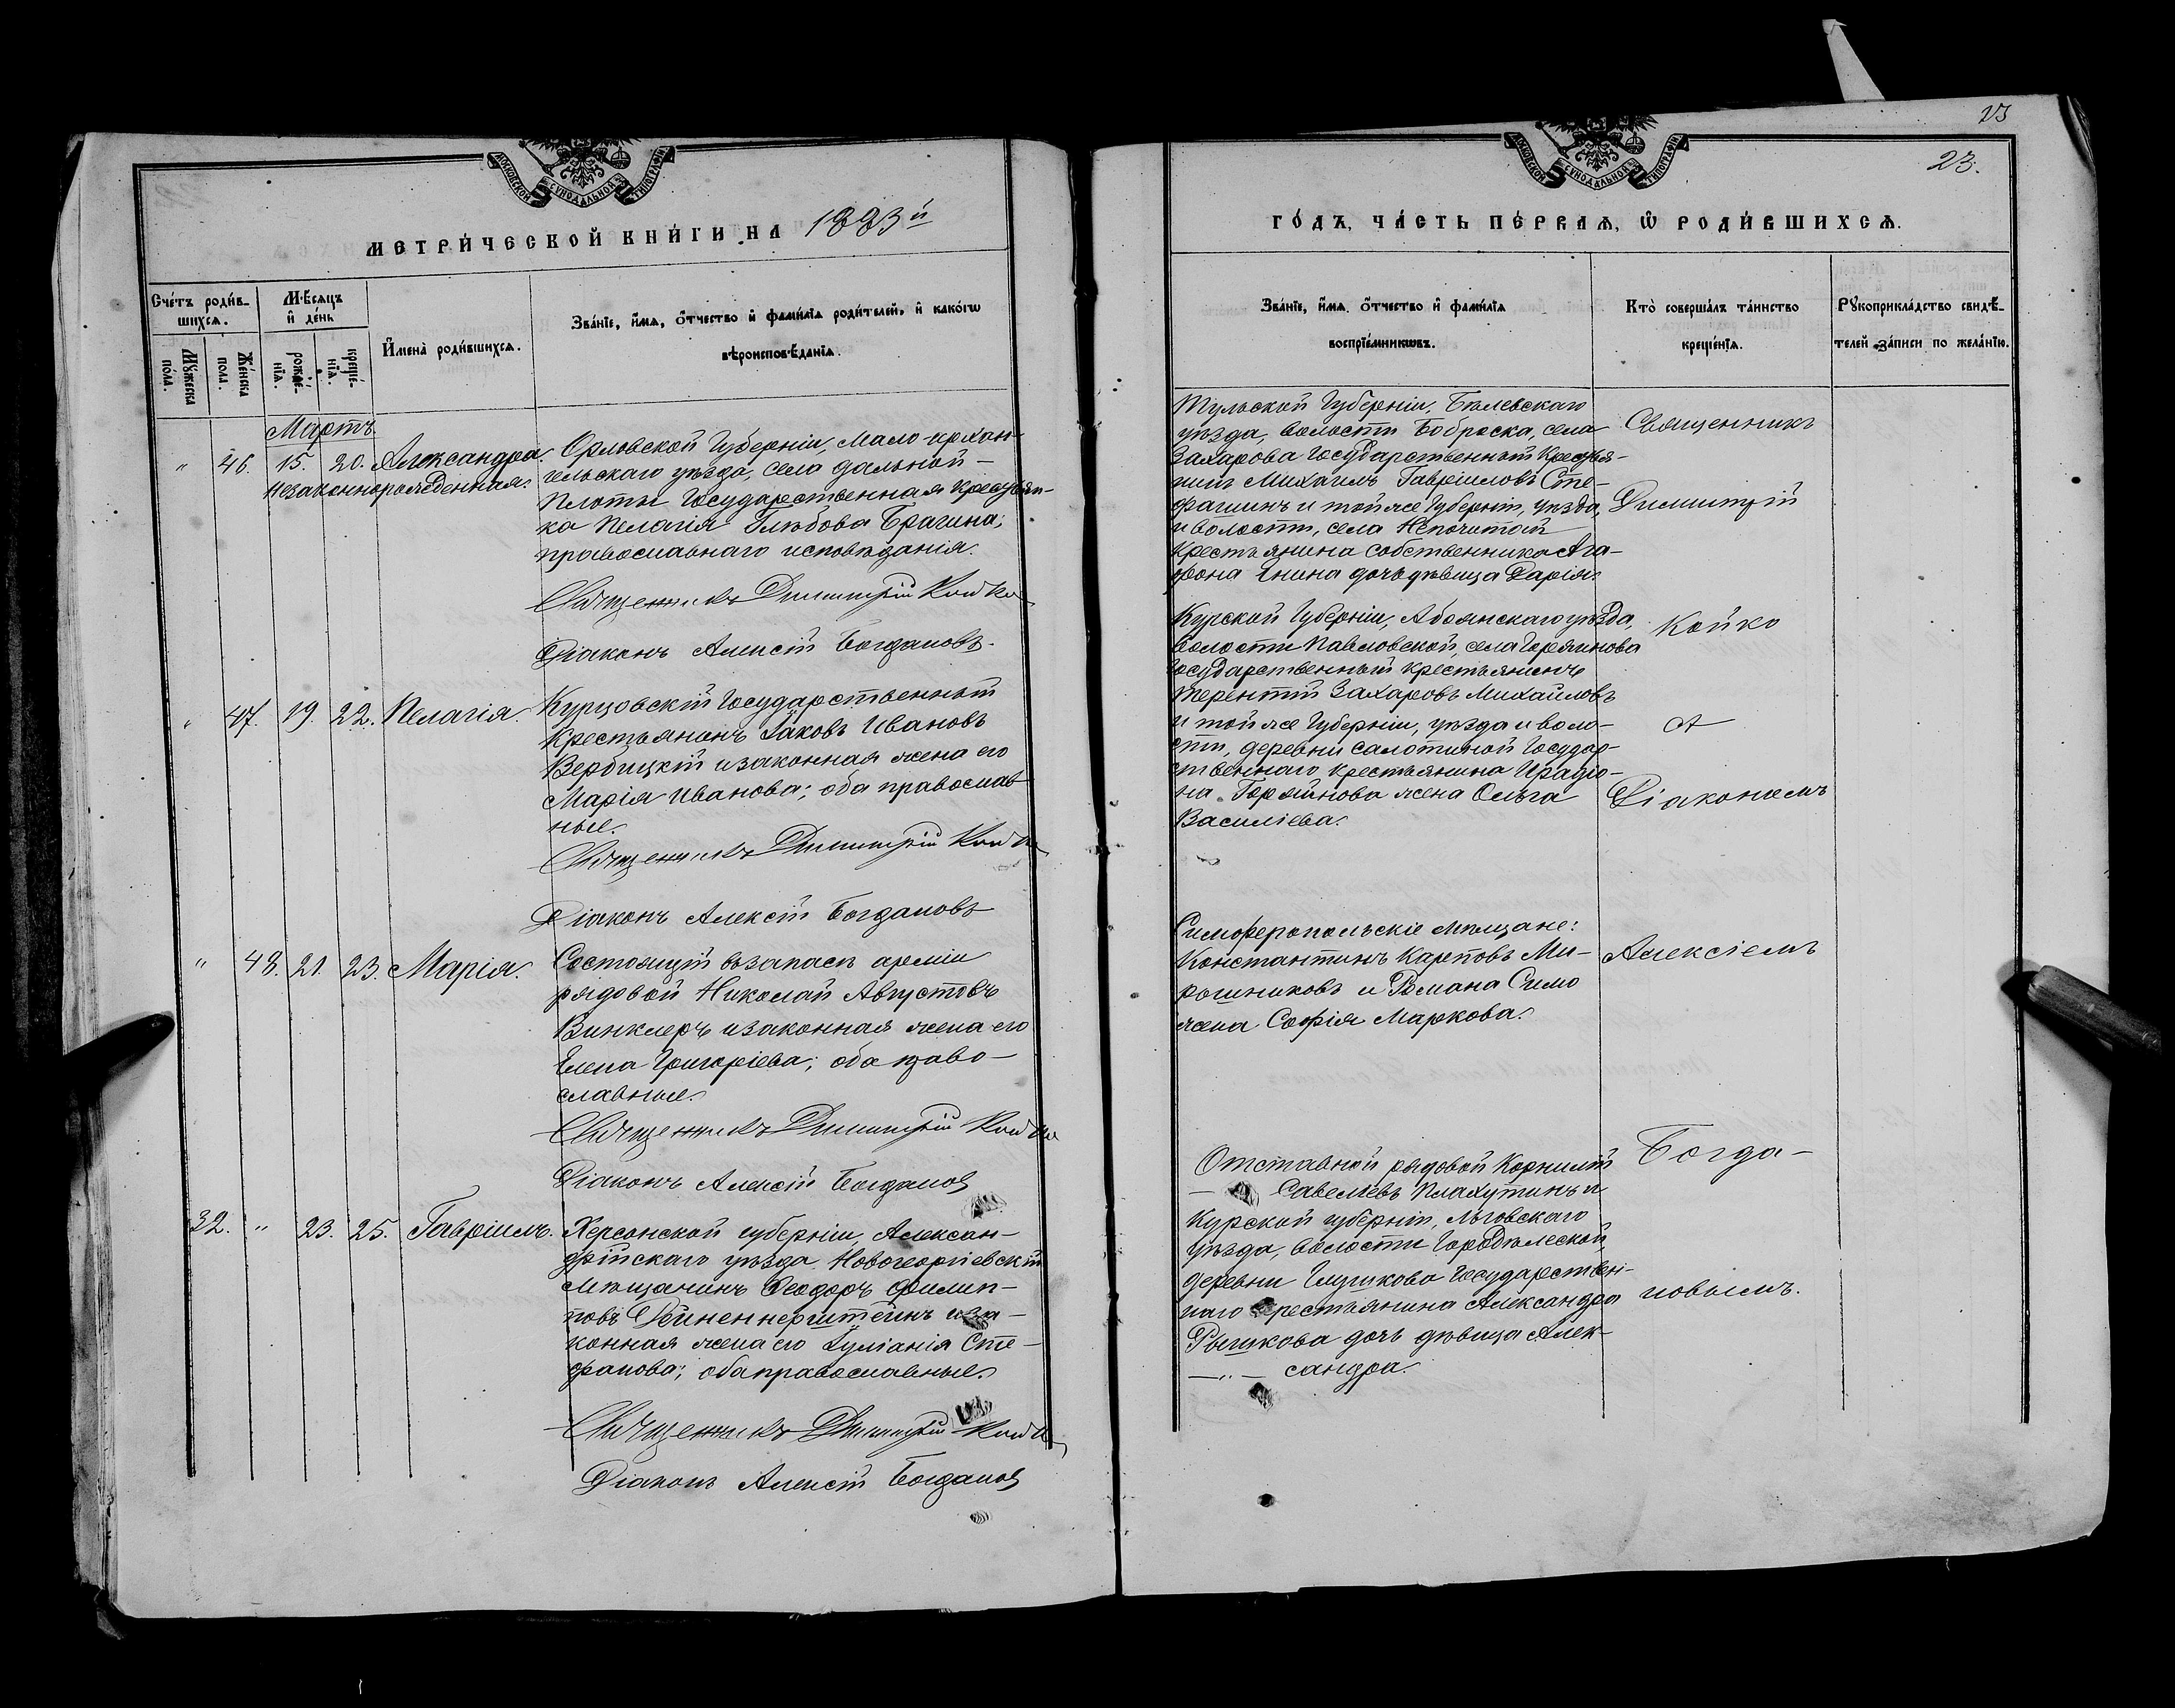 МОСКОВСКОЙ СѴНОДАЛЬНОЙ ТИПОГРАФІИ
МЕТРИ́ЧЕСКОЙ КНИ́ГИ НА 1883й
Сче́тъ роди́в-
шихсѧ.
Мѣ́сѧцъ
и҆ де́нь
Мꙋ́жеска
по́ла.
Же́нска
пола.
рожде́-
нїѧ.
креще́-
нїѧ.
И҆мена̀ роди́вшихсѧ.
Зва́нїе, и҆́мѧ, о҆́тчество и҆ фами́лїѧ роди́телей, и҆ како́гѡ
вѣроисповѣ́данїѧ.
Мартъ.
" 46. 15. 20. Александра.
Незаконнорожденная.
Орловской Губерніи, Мало-архан-
гельскаго уѣзда, села Дальной-
Плоты Государственная Крестьян-
ка Пелагія Глѣбова Брагина;
православнаго исповѣданія.
Священникъ Димитрій Койко
Діаконъ Алексій Богдановъ.
" 47. 19. 22. Пелагія.
Курцовскій Государственный
Крестьянинъ Іаковъ Ивановъ
Вербицкій и законная жена его
Марія Иванова; оба православ-
ные.
Священникъ Димитрій Койко
Діаконъ Алексій Богдановъ
" 48. 21. 23. Марія.
Состоящій въ запасѣ арміи
рядовой Николай Августовъ
Винклеръ и законная жена его
Елена Григоріева; оба право-
славные.
Священникъ Димитрій Койко
Діаконъ Алексій Богдановъ
32. " 23. 25. Гавріилъ.
Херсонской губерніи, Алексан-
дрійскаго уѣзда Новогеоргіевскій
Мѣщанинъ Ѳеодоръ Филип-
повъ и за-
конная жена его Іуліанія Сте-
фанова; оба православные.
Священникъ Димитрій Койко
Діаконъ Алексій Богдановъ
23
23.
МОСКОВСКОЙ СѴНОДАЛЬНОЙ ТИПОГРАФІИ
ГО́ДЪ, ЧА́СТЬ ПЕ́РВАѦ, Ѡ҆ РОДИ́ВШИХСѦ.
Зва́нїе, и҆́мѧ, о҆́тчество и҆ фами́лїѧ
воспрїе́мникѡвъ.
Кто̀ соверша́лъ та́инство
креще́нїѧ.
Рꙋкоприкла́дство свидѣ́-
телей за́писи по жела́нїю.
Тульской Губерніи, Бѣлевскаго
уѣзда, волости Боброска, села
Захарова Государственный Крестья-
нинъ Михаилъ Гавріиловъ Сте-
фашинъ и той же Губерніи, уѣзда,
и волости, села
Крестьянина собственника Ага-
фона Енина дочь дѣвица Дарія.
Курской Губерніи, Абоянскаго уѣзда,
волости Павловской, села Горяинова
Государственный крестьянинъ
Терентій Захаровъ Михайловъ
и той же Губерніи, уѣзда и воло-
сти, деревни Салотиной Государ-
ственнаго крестьянина Иродіо-
на Горяинова жена Ольга
Василіева.
Симферопольскіе Мѣщане:
Константинъ Карповъ Ми-
рошниковъ и Романа Симо
жена Софія Маркова.
Отставной рядовой Корнилій
Савеліевъ Плахутинъ и
Курской губерніи, Льговскаго
уѣзда, волости
деревни Глушкова Государствен-
наго крестьянина Александра
Рышкова дочь дѣвица Алек-
—"— сандра.
Священникъ
Димитрій
Койко
съ
Діакономъ
Алексіемъ
Богда-
новымъ.